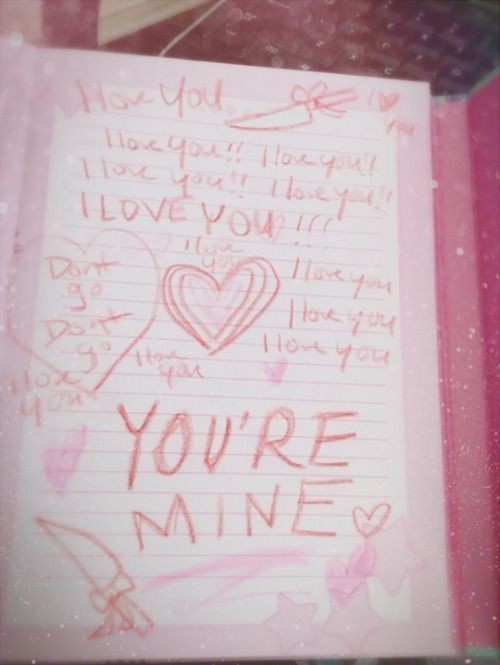 I love You
I ♡ you
I love you!! I love you!!
I love you!! I love you!!
I LOVE YOU!!!
I love you
I love you
Dont go
I love you
Dont go
I love you
I love you
I love you
YOU'RE
MINE